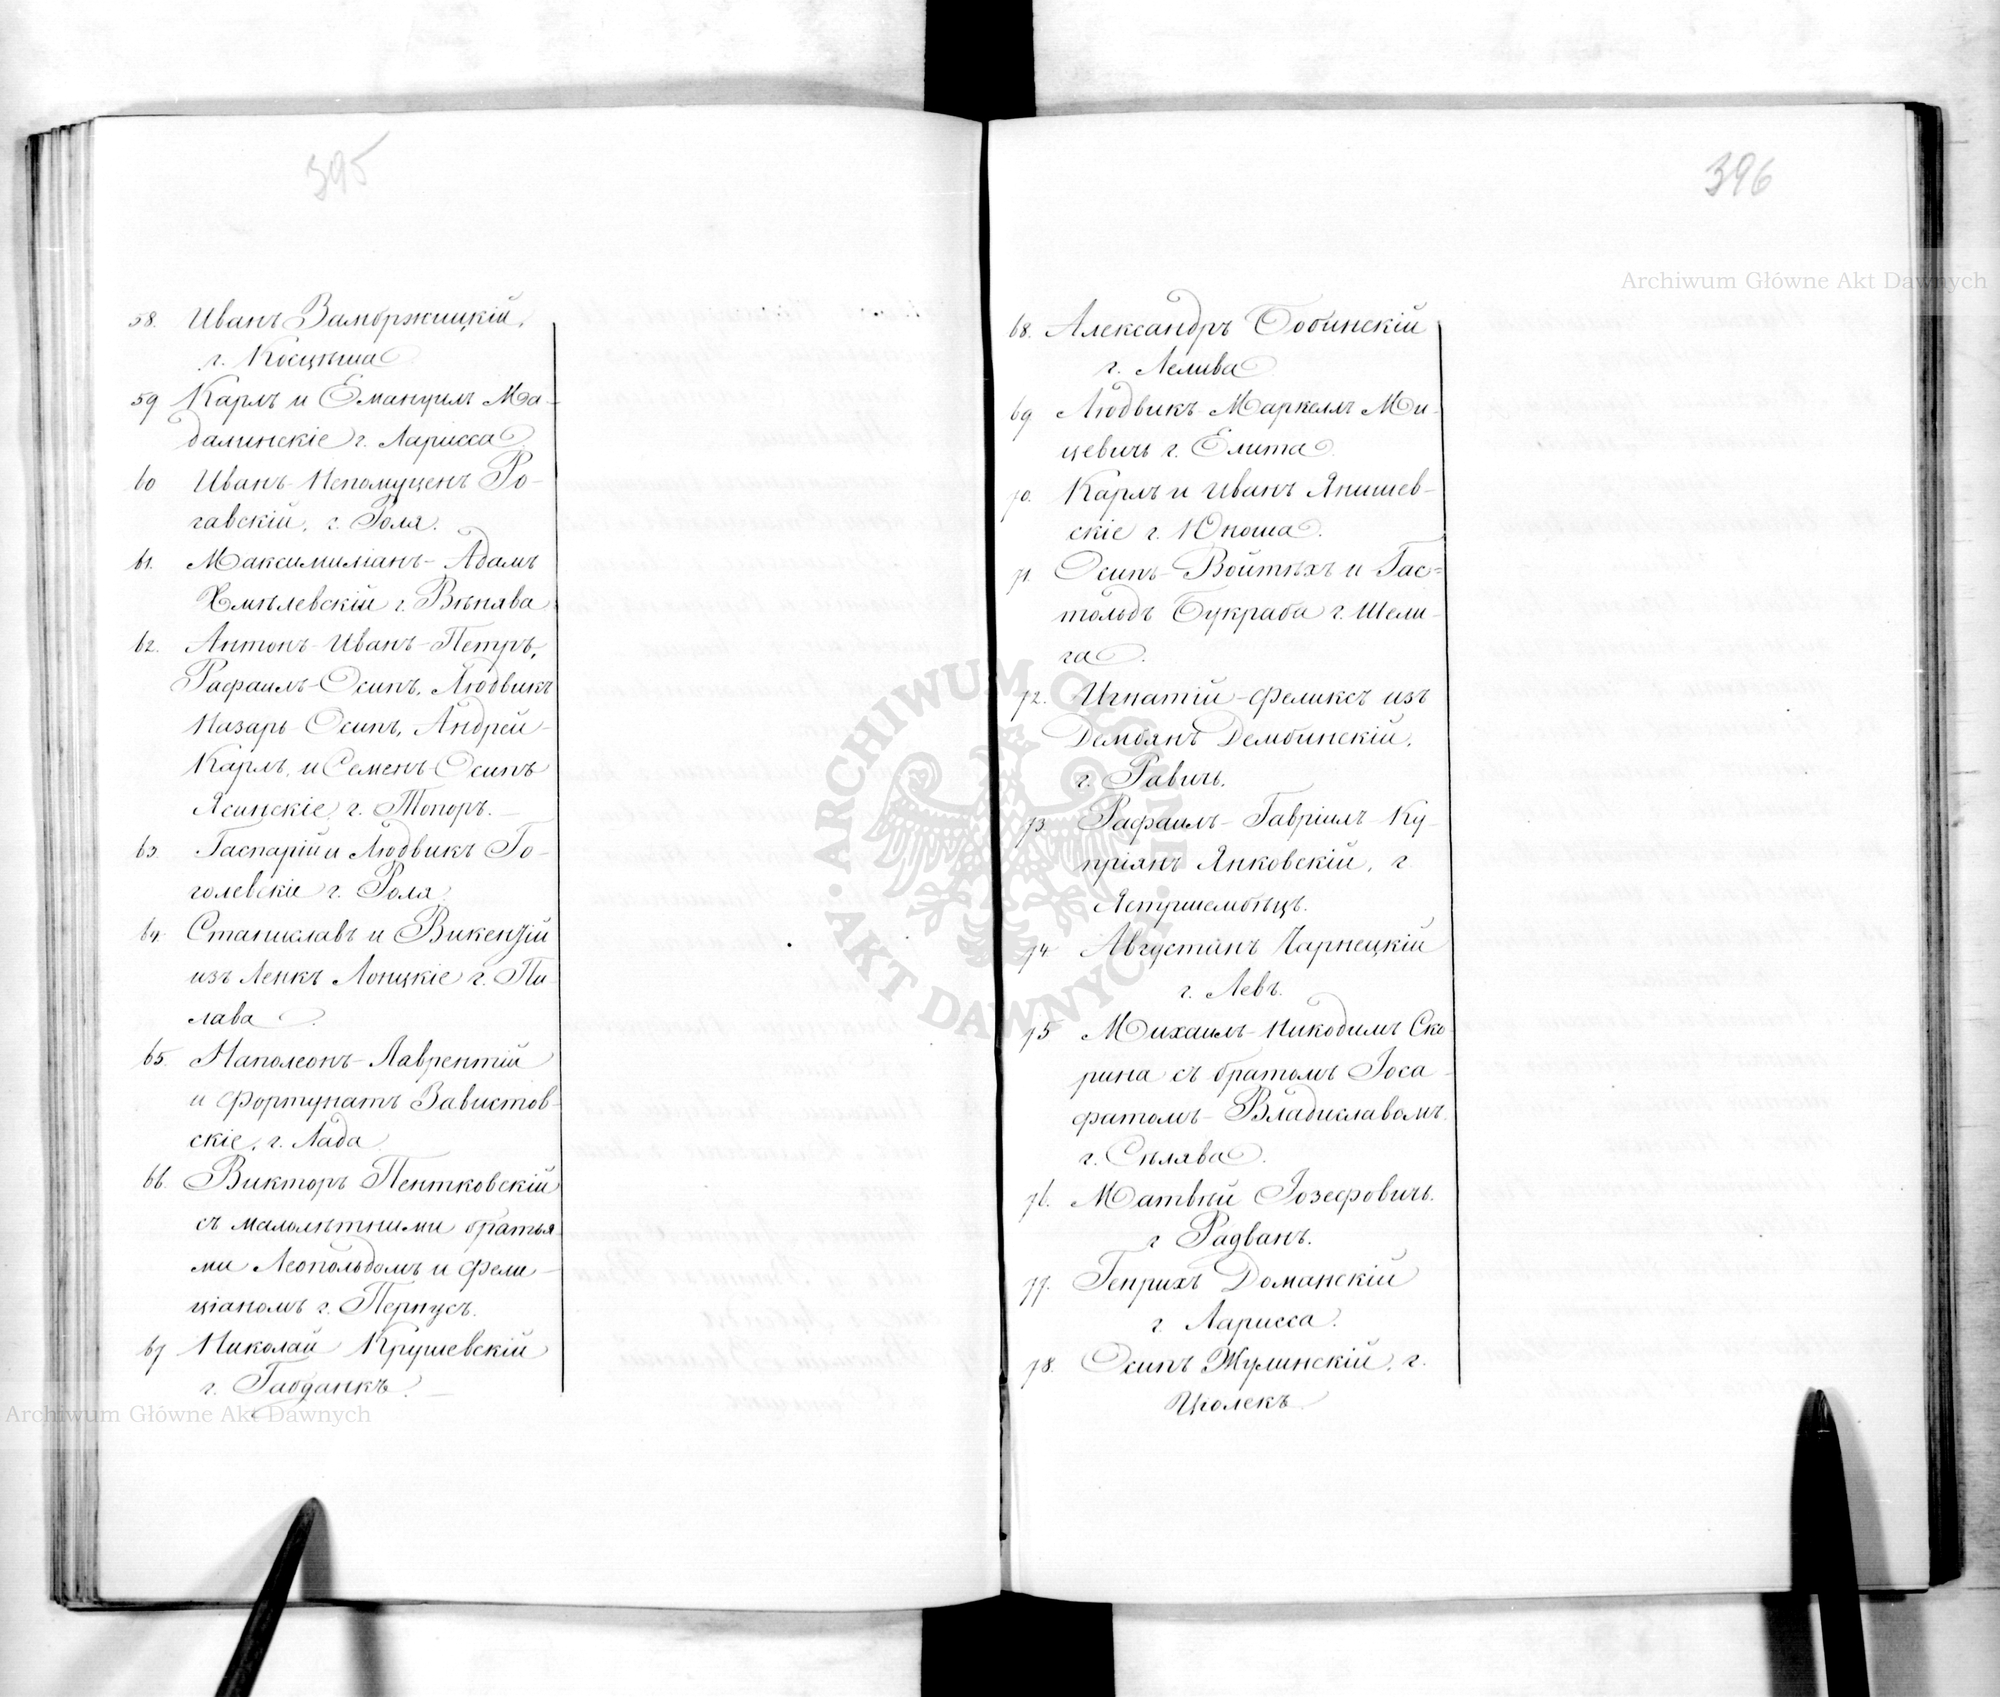 395
58. Иванъ Замбржицкій,
г. Косцѣша
59 Карлъ и Емануилъ Ма-
далинскіе г. Ларисса
60 Иванъ-Непомуценъ Ро-
гавскій, г. Роля.
61. Максимиліанъ-Адамъ
Хмѣлевскій г. Вѣнява
62. Антонъ-Иванъ-Петръ,
Рафаилъ-Осипъ, Людвикъ
Назаръ-Осипъ, Андрей-
Карлъ, и Семенъ-Осипъ
Ясинскіе, г. Топоръ. —
63. Гаспарій и Людвикъ Го-
голевскіе г. Роля
64. Станиславъ и Викентій
изъ Ленкъ Лоницкіе г. Пи-
лава.
65. Наполеонъ-Лаврентій
и Фортунатъ Завистов-
скіе, г. Лада
66. Викторъ Пентковскій
съ малолѣтними братья-
ми Леопольдомъ и Фели-
ціаномъ г. Пернусъ.
67 Николай Крушевскій
г. Габданкъ. —
396
68. Александръ Бобинскій
г. Лелива
69. Людвикъ-Маркеллъ Ми-
цевичъ г. Елита
70. Карлъ и Иванъ Янишев-
скіе г. Юноша.
71. Осипъ-Войтѣхъ и Гас-
толдъ Букраба г. Шели-
га.
72. Игнатій-Феликсъ изъ
Дембянъ Дембинскій,
г. Равичъ.
73. Рафаилъ-Гавріилъ-Ку-
пріянъ Янковскій, г.
Ястршембѣцъ.
74 Августинъ Чарнецкій
г. Левъ.
75 Михаилъ-Никодимъ Ско-
рина съ братомъ Іоса-
фатомъ-Владиславомъ.
г. Сѣлява.
76. Матвѣй Іозефовичъ.
г Радванъ.
77. Генрихъ Доманскій
г. Ларисса.
78. Осипъ Жулинскій, г.
Цюлекъ
Archiwum Główne Akt Dawnych
Archiwum Główne Akt Dawnych
ARCHIWUM GŁÓWNE AKT DAWNYCH